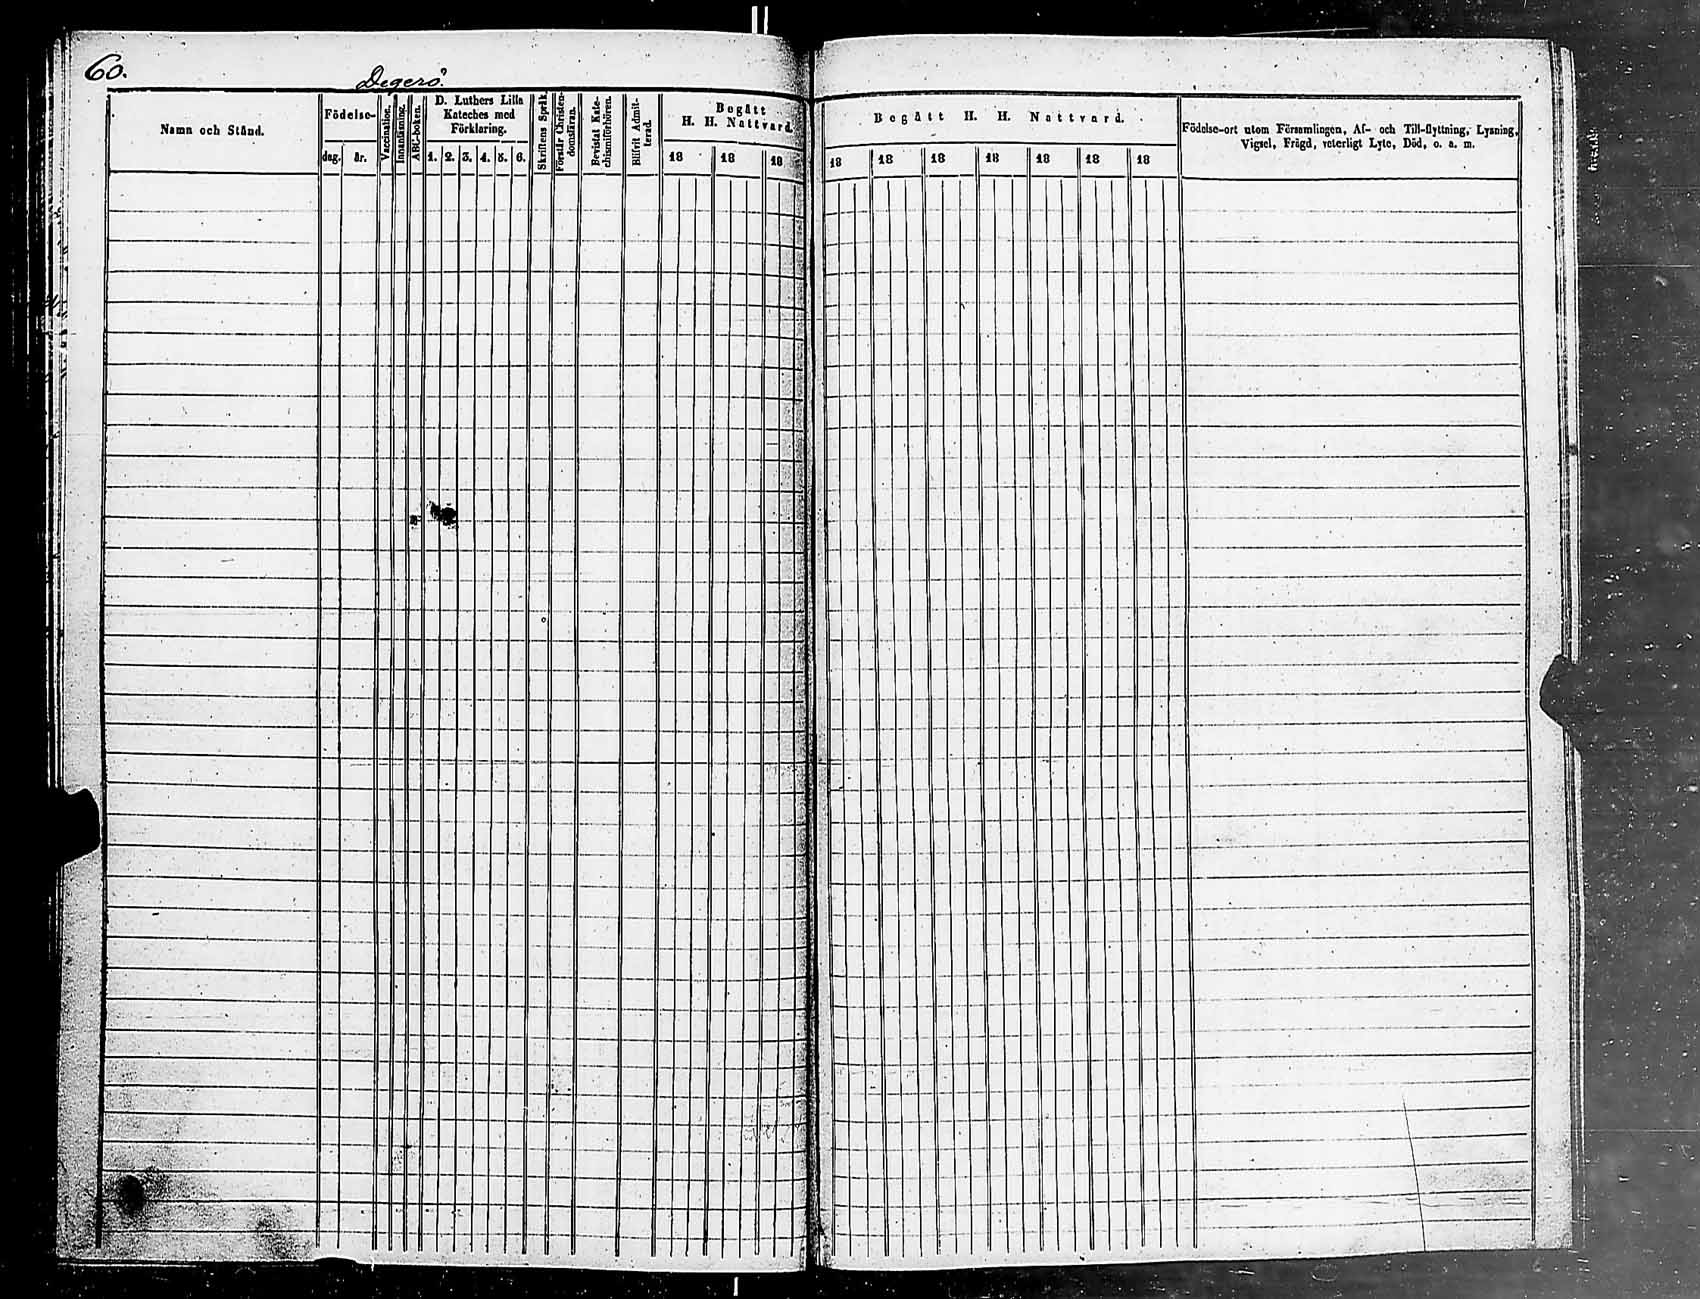 60.
Degerö.
Namn och Stånd.
Födelse-
dag. år.
Vaccination.
Innanläsning.
ABC-boken.
D. Luthers Lilla
Kateches med
Förklaring.
1. 2. 3. 4. 5. 6.
Skriftens Språk.
Förstår Christen-
domsläran.
Bevistat Kate-
chismiförhören.
Blifvit Admit-
terad.
Begått
H. H. Nattvard.
18 18 18
Begått H. H. Nattvard.
18 18 18 18 18 18 18
Födelse-ort utom Församlingen, Af- och Till-flyttning, Lysning,
Vigsel, Frägd, veterligt Lyte, Död, o. a. m.